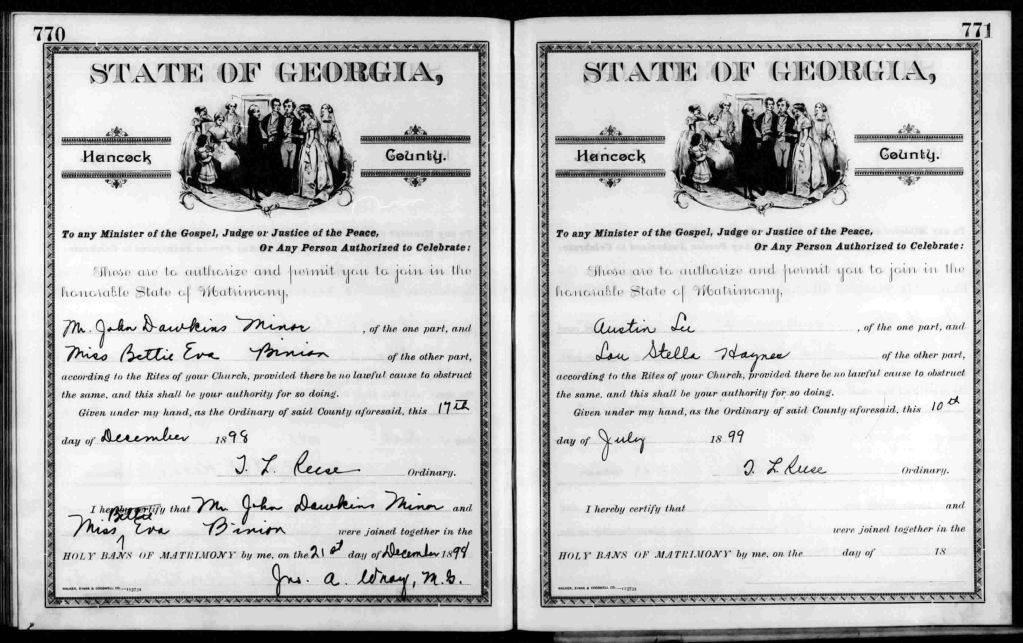 770
STATE OF GEORGIA,
Hancock County.
To any Minister of the Gospel, Judge or Justice of the Peace,
Or Any Person Authorized to Celebrate:
These are to authorize and permit you to join in the
honorable State of Matrimony,
Mr. John Dawkins Minor, of the one part, and
Miss Bettie Eva Binion of the other part,
according to the Rites of your Church, provided there be no lawful cause to obstruct
the same, and this shall be your authority for so doing.
Given under my hand, as the Ordinary of said County aforesaid, this 17th
day of December 1898
T. L. Reese Ordinary.
I hereby certify that Mr. John Dawkins Minor and
Bettie
Miss Eva Binion were joined together in the
HOLY BANS OF MATRIMONY by me, on the 21st day of December 1898
Jno. A. Wray, M.G.
771
STATE OF GEORGIA,
Hancock County.
To any Minister of the Gospel, Judge or Justice of the Peace,
Or Any Person Authorized to Celebrate:
These are to authorize and permit you to join in the
honorable State of Matrimony,
Austin Lu, of the one part, and
Lou Stella Haynes of the other part,
according to the Rites of your Church, provided there be no lawful cause to obstruct
the same, and this shall be your authority for so doing.
Given under my hand, as the Ordinary of said County aforesaid, this 10th
day of July 1899
T. L. Reese Ordinary.
I hereby certify that and
were joined together in the
HOLY BANS OF MATRIMONY by me, on the day of 18